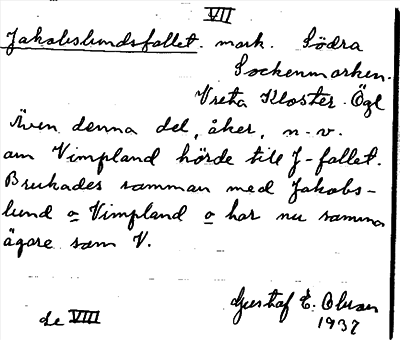 VII
Jakobslundsfallet. mark. Södra
Sockenmarken.
Vreta Kloster. Ögl
Även denna del, åker, n.v.
om Vimpland hörde till J-fallet.
Brukades samman med Jakobs-
lund o Vimpland o har nu samma
ägare som V.
Gustaf E. Olsson
1937
de VIII